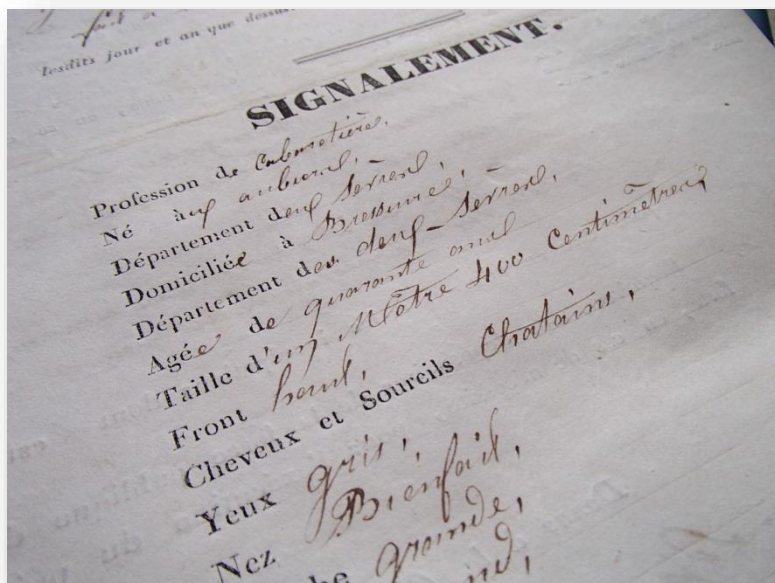 lesdits jour et an que dessus
SIGNALEMENT.
Profession de Cabaretière,
Né aux aubiers,
Département deux Sèvres,
Domiciliée à Bressuire,
Département des deux-Sèvres,
Agée de quarante ans
Taille d'un Mètre 400 Centimètres,
Front haut,
Cheveux et Sourcils Chatains,
Yeux gris,
Nez Bienfait,
grande,